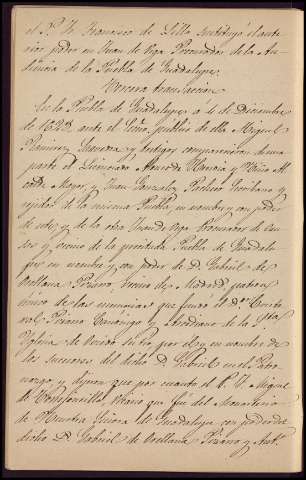 el P. Fr. Francisco de Lillo sustituyó el ante
rior poder en Juan de Vega Procurador de la Au-
diencia de la Puebla de Guadalupe.
Tercera transaccion
En la Puebla de Guadalupe á 4 de Diciembre
de 1622, ante el Escno. público de ella Miguel
Ramirez y testigos comparecieron de una
parte el Licenciado y
calde Mayor, y Juan Gonzalez Pacheco Escribano y
regidor de la misma Puebla, en nombre y con poder
de esta; y de la otra Juan de Vega Procurador de cau-
sas y vecino de la precitada Puebla de Guadalu-
pe en nombre y con poder de D. Gabriel de
Orellana Pizarro, vecino de Madrid, patron
único de las memorias que fundó el Dor.
Pizarro Canónigo y Arcediano de la Sta.
Iglesia de Toledo, su tio, por él y en nombre de
los sucesores del dicho D. Gabriel en el Patro-
nazgo, y dijeron que por cuanto el P. Fr. Miguel
de que fué del Monasterio
de Nuestra Señora de Guadalupe con poder del
dicho D. Gabriel de Orellana Pizarro y Ant.